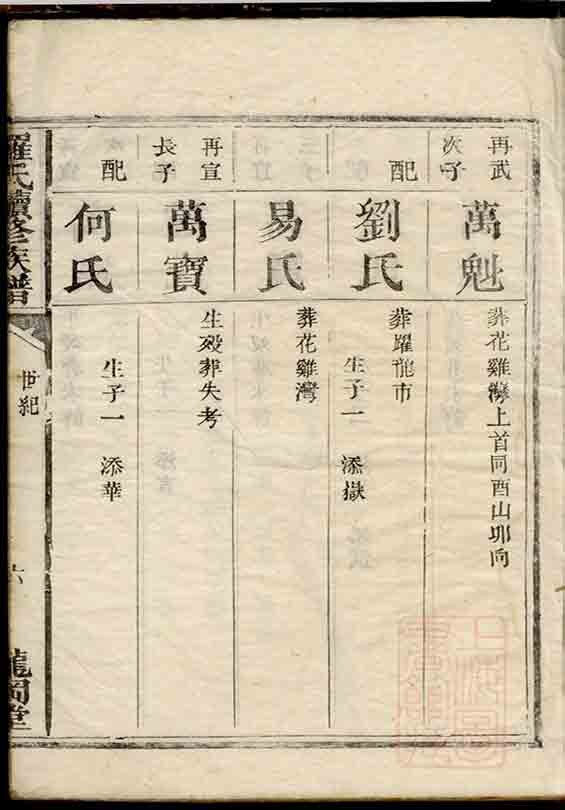 再武
次子
萬魁
葬花雞灣上首同酉山卯向
配
劉氏
葬躍龍市
生子一 添嶽
易氏
葬花雞灣
再宣
長子
萬寶
生歿葬失考
配
何氏
生子一 添華
羅氏續修族譜
世紀
六
上海圖書館藏